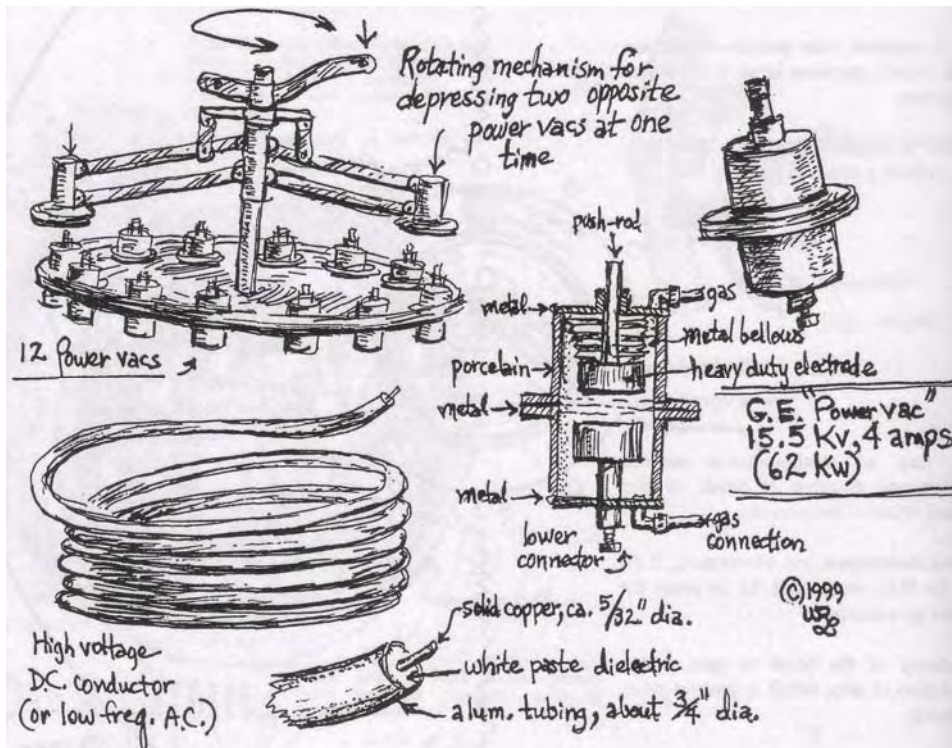 Rotating mechanism for
depressing two opposite
power vacs at one
time
12 Power vacs
push-rod
metal
gas
metal bellows
porcelain
heavy duty electrode
metal
G.E. "Power vac"
15.5 Kv, 4 amps
(62 Kw)
metal
lower
connector
gas
connection
©1999
High voltage
D.C. conductor
(or low freq. A.C.)
solid copper, ca. 5/32" dia.
white paste dielectric
alum. tubing, about 3/4" dia.